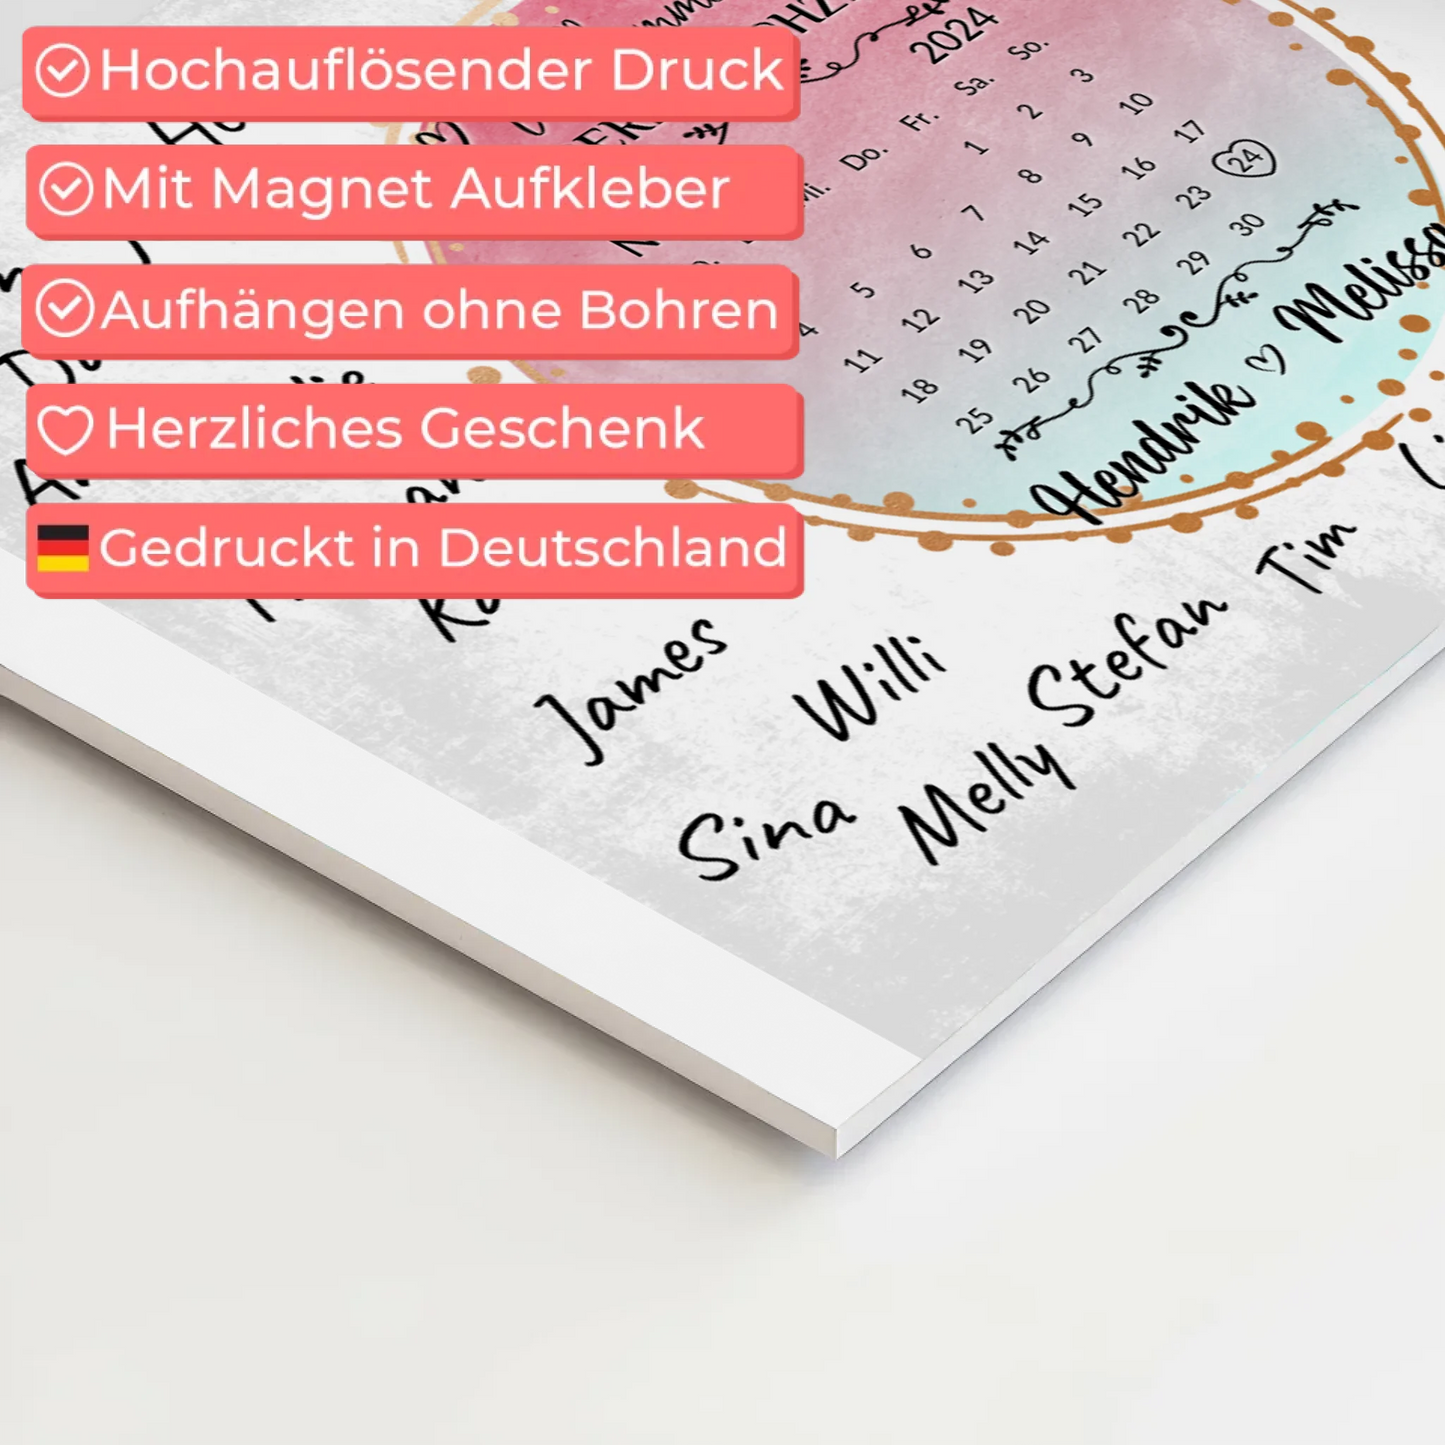 Hochauflösender Druck
Mit Magnet Aufkleber
Aufhängen ohne Bohren
Herzliches Geschenk
Gedruckt in Deutschland
2024
Do. Fr. Sa. So.
1 2 3
4 5 6 7 8 9 10
11 12 13 14 15 16 17
18 19 20 21 22 23 24
25 26 27 28 29 30
Hendrik Melissa
James
Willi
Stefan
Tim
Sina
Melly